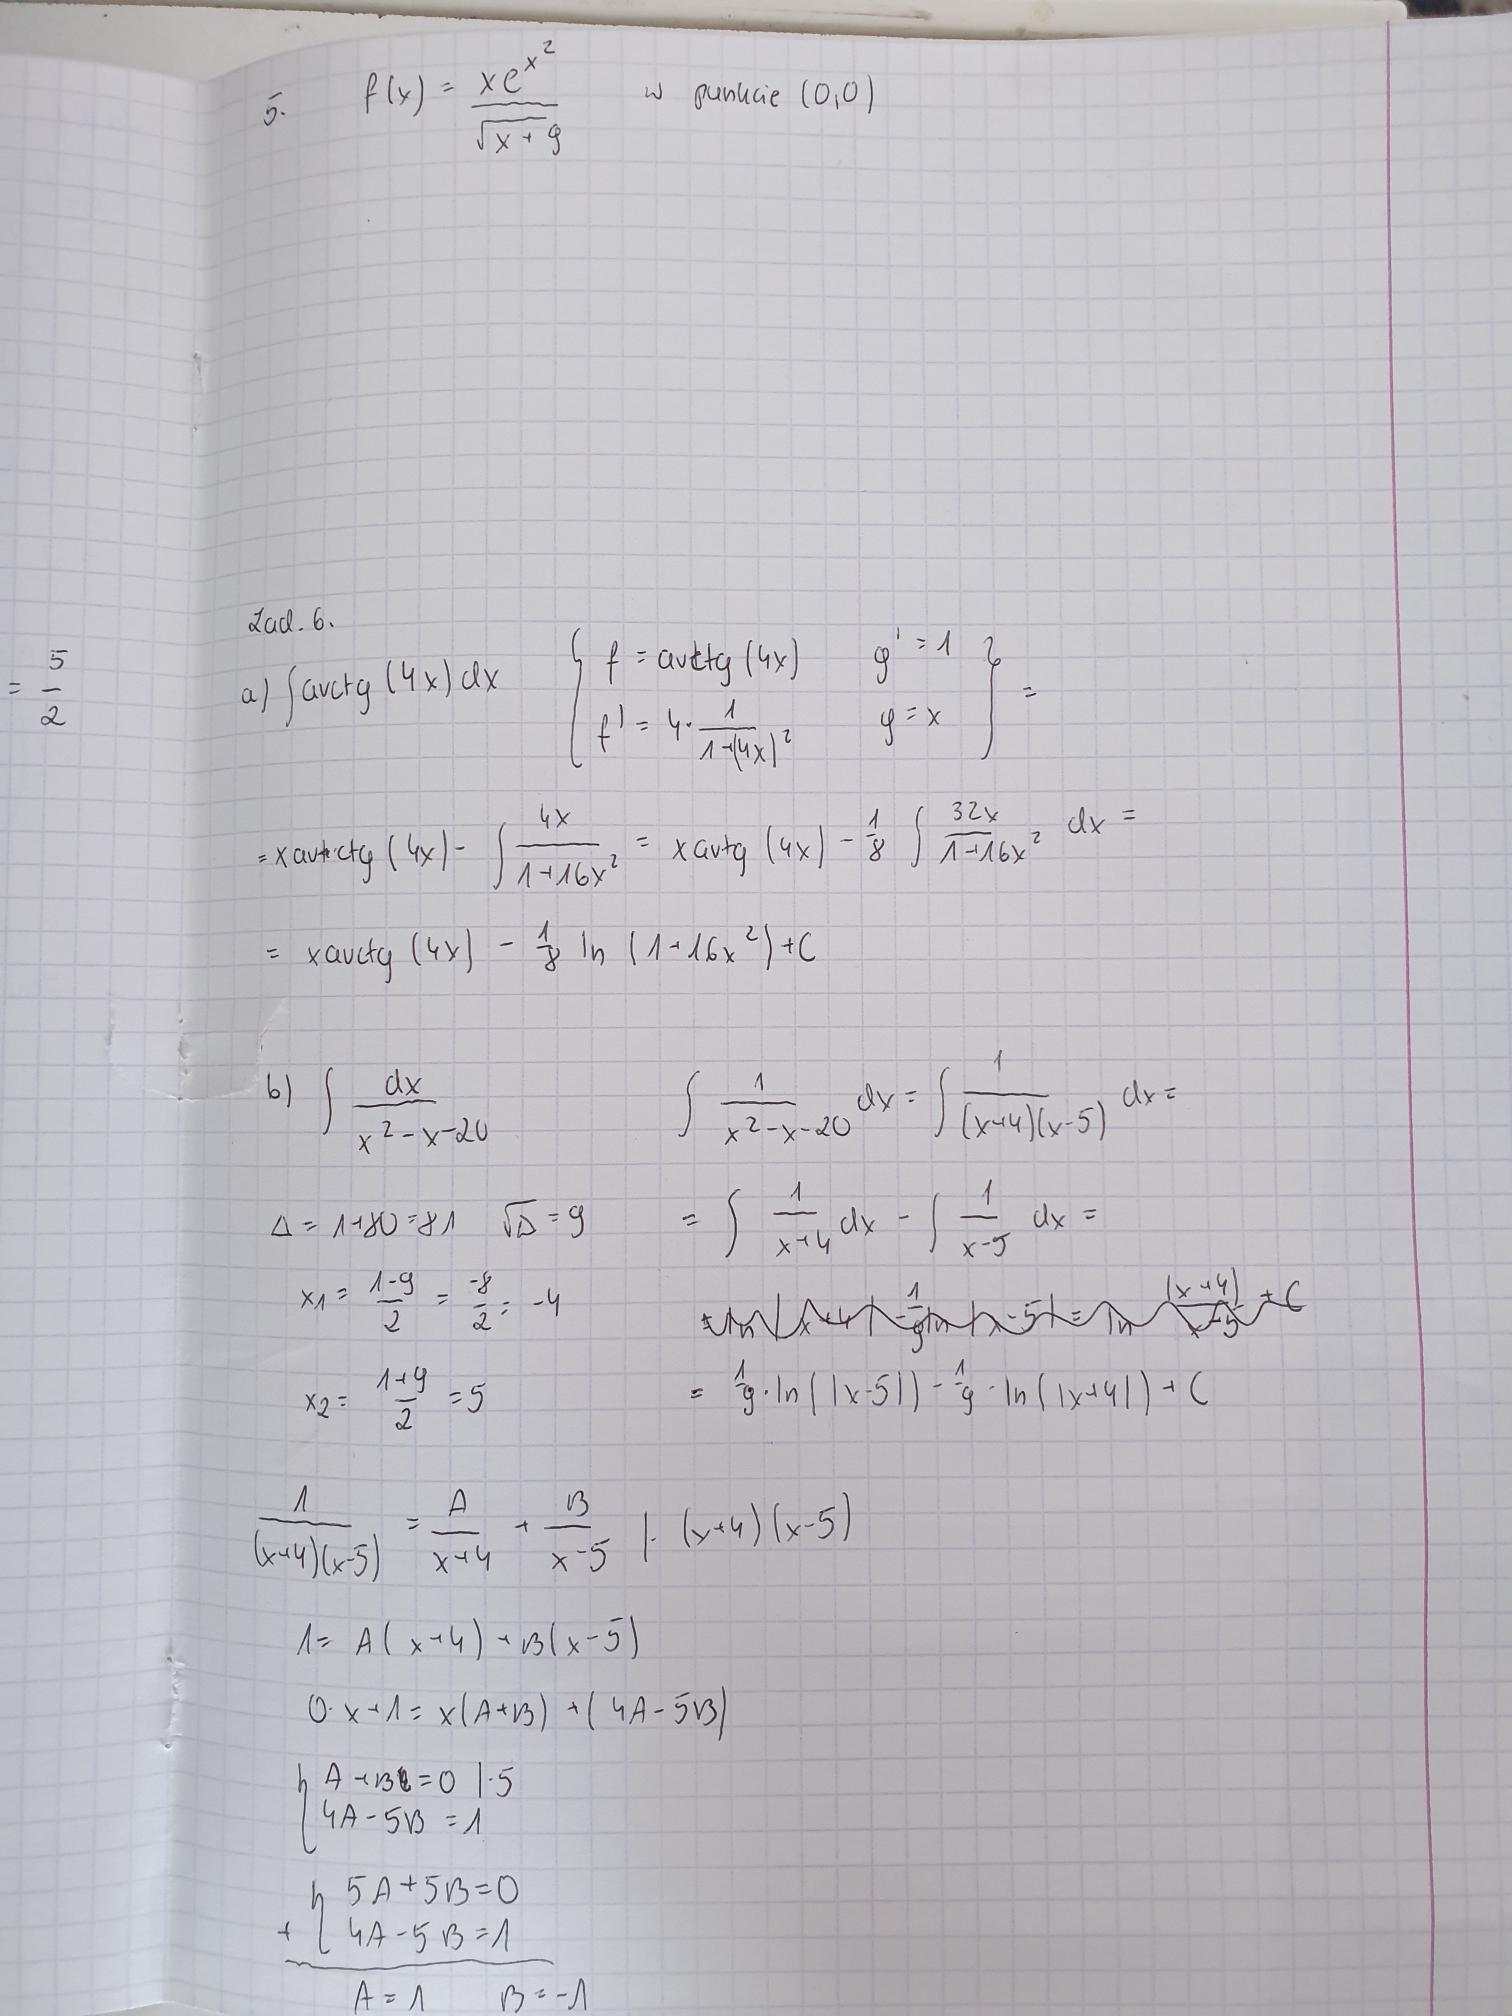 5. f(x) = xe^x² / √x+9 w punkcie (0,0)
= 5/2
Zad. 6.
a) ∫ arctg (4x) dx { f = arctg (4x) g' = 1
f' = 4 · 1/(1+(4x)²) g = x } =
= x arctg (4x) - ∫ 4x/(1+16x²) = x artg (4x) - 1/8 ∫ 32x/(1+16x²) dx =
= x arctg (4x) - 1/8 ln (1+16x²) + C
b) ∫ dx/(x²-x-20)
Δ = 1+80 = 81 √Δ = 9
x1 = (1-9)/2 = -8/2 = -4
x2 = (1+9)/2 = 5
∫ 1/(x²-x-20) dx = ∫ 1/((x+4)(x-5)) dx =
= ∫ 1/(x+4) dx - ∫ 1/(x-5) dx =
= ln |x+4| - 1/9 ln |x-5| = ln (x+4)/(x-5) + C
= 1/9 · ln(|x-5|) - 1/9 · ln(|x+4|) + C
1/((x+4)(x-5)) = A/(x+4) + B/(x-5) | · (x+4)(x-5)
1 = A(x+4) + B(x-5)
0·x+1 = x(A+B) + (4A-5B)
{ A+B = 0 | ·5
4A-5B = 1
{ 5A+5B = 0
+ 4A-5B = 1
A = 1 B = -1